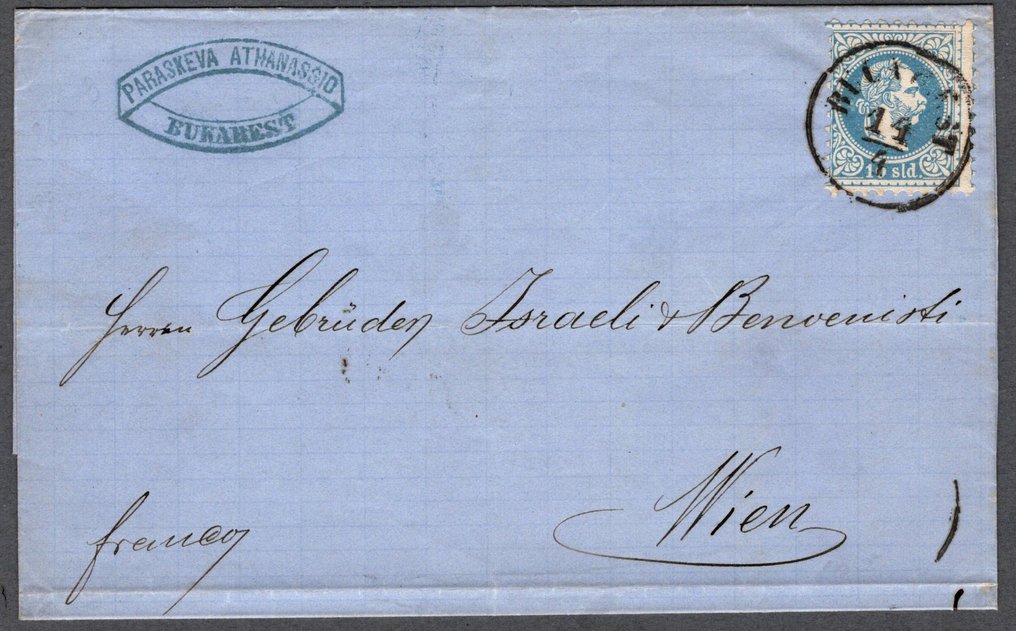 PARASKEVA ATHANASSIO
BUKAREST
BUKAREST
11
4
10 sld.
Herren Gebrüder Israeli & Benvenisti
Wien
franco